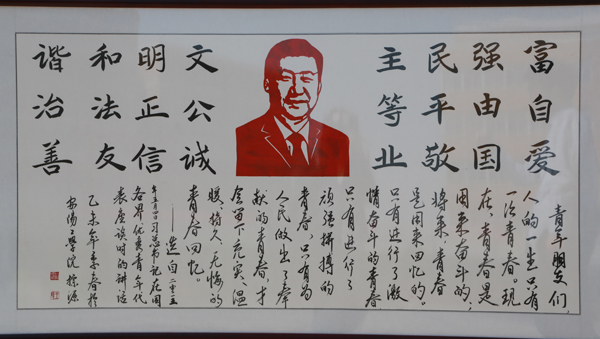 富自爱
强由国
民平敬
主等业
文公诚
明正信
和法友
谐治善
青年朋友们，
人的一生只有
一次青春。现
在，青春是
用来奋斗的；
将来，青春
是用来回忆的。
只有进行了激
情奋斗的青春
只有进行了
顽强拼搏的
青春，只有为
人民做出了奉
献的青春，才
会留下充实、温
暖、持久、无悔的
青春回忆。
——选自
年五月四日习总书记在同
各界优秀青年代
表座谈时的讲话
乙未年季春于
学院